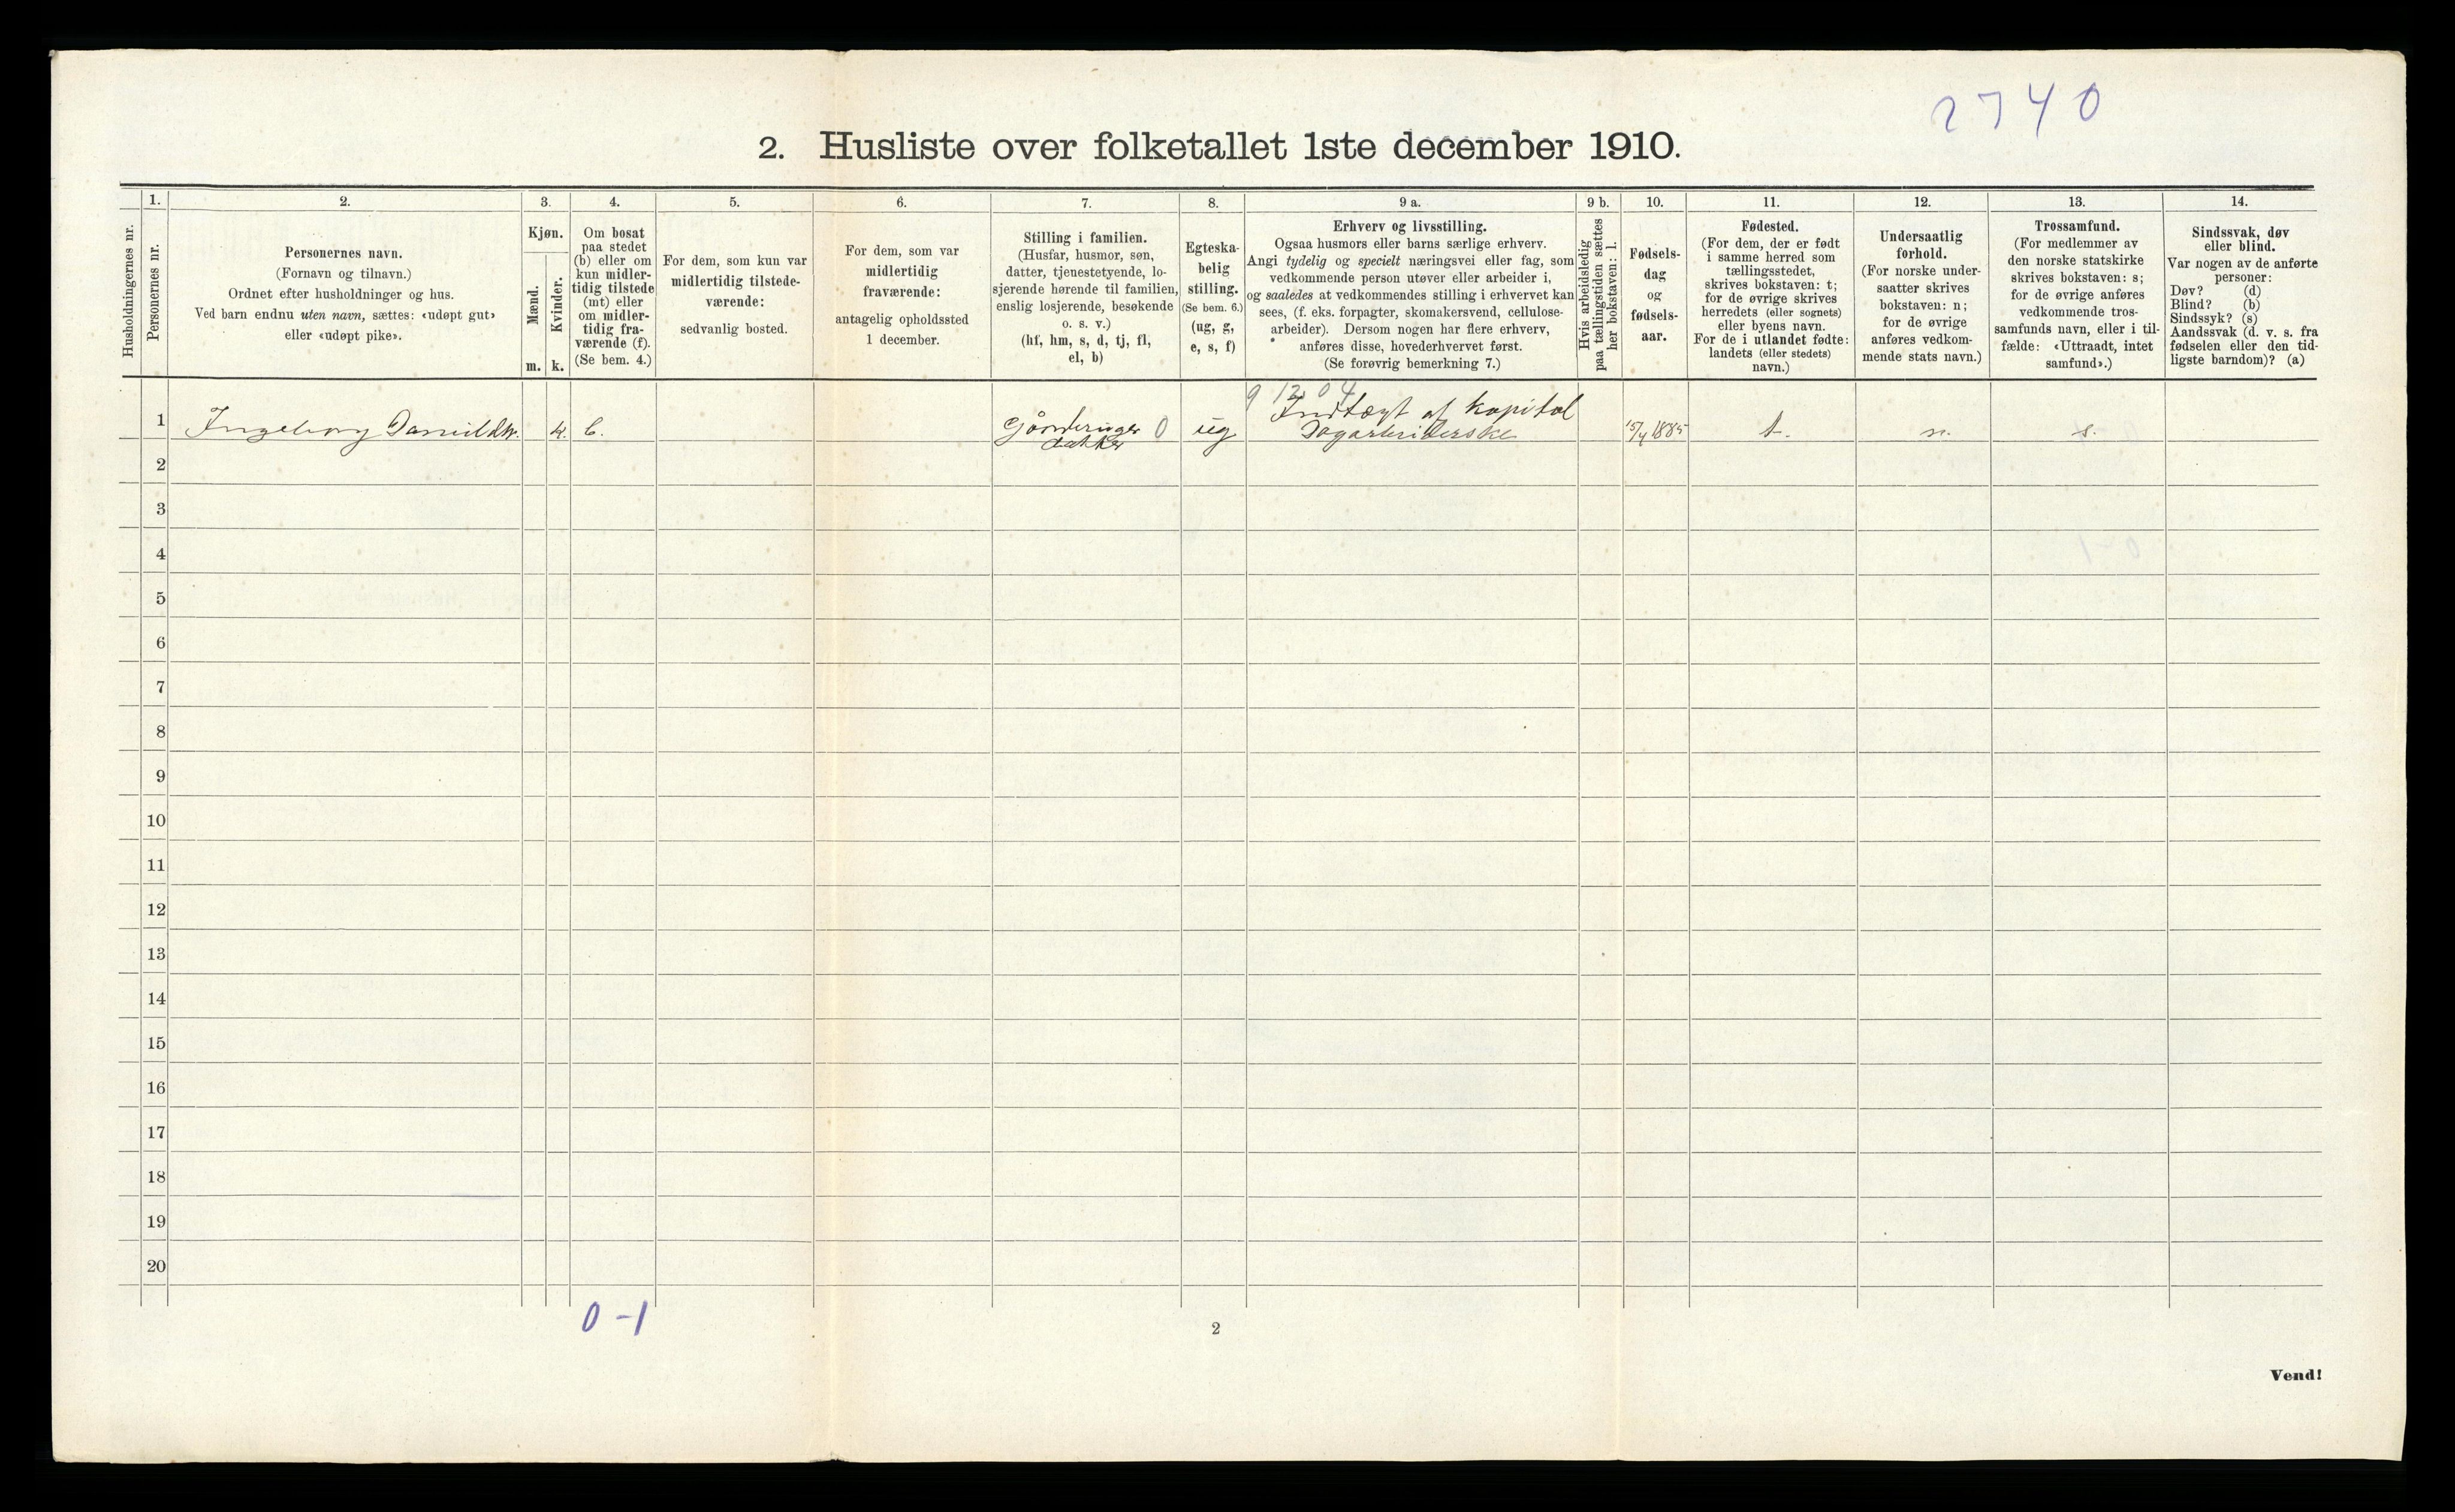 2740
2. Husliste over folketallet 1ste december 1910.
Husholdningernes nr.
1.
Personernes nr.
2.
Personernes navn.
(Fornavn og tilnavn.)
Ordnet efter husholdninger og hus.
Ved barn endnu uten navn, sættes: «udøpt gut»
eller «udøpt pike».
3.
Kjøn.
Mænd.
m.
Kvinder.
k.
4.
Om bosat
paa stedet
(b) eller om
kun midler-
tidig tilstede
(mt) eller
om midler-
tidig fra-
værende (f).
(Se bem. 4.)
5.
For dem, som kun var
midlertidig tilstede-
værende:
sedvanlig bosted.
6.
For dem, som var
midlertidig
fraværende:
antagelig opholdssted
1 december.
7.
Stilling i familien.
(Husfar, husmor, søn,
datter, tjenestetyende, lo-
sjerende hørende til familien,
enslig losjerende, besøkende
o. s. v.)
(hf, hm, s, d, tj, fl,
el, b)
8.
Egteska-
belig
stilling.
(Se bem. 6.)
(ug, g,
e, s, f)
9 a.
Erhverv og livsstilling.
Ogsaa husmors eller barns særlige erhverv.
Angi tydelig og specielt næringsvei eller fag, som
vedkommende person utøver eller arbeider i,
og saaledes at vedkommendes stilling i erhvervet kan
sees, (f. eks. forpagter, skomakersvend, cellulose-
arbeider). Dersom nogen har flere erhverv,
anføres disse, hovederhvervet først.
(Se forøvrig bemerkning 7.)
9 b.
Hvis arbeidsledig
paa tællingstiden sættes
her bokstaven: l.
10.
Fødsels-
dag
og
fødsels-
aar.
11.
Fødested.
(For dem, der er født
i samme herred som
tællingsstedet,
skrives bokstaven: t;
for de øvrige skrives
herredets (eller sognets)
eller byens navn.
For de i utlandet fødte:
landets (eller stedets)
navn.)
12.
Undersaatlig
forhold.
(For norske under-
saatter skrives
bokstaven: n;
for de øvrige
anføres vedkom-
mende stats navn.)
13.
Trossamfund.
(For medlemmer av
den norske statskirke
skrives bokstaven: s;
for de øvrige anføres
vedkommende tros-
samfunds navn, eller i til-
fælde: «Uttraadt, intet
samfund».)
14.
Sindssvak, døv
eller blind.
Var nogen av de anførte
personer:
Døv? (d)
Blind? (b)
Sindssyk? (s)
Aandssvak (d. v. s. fra
fødselen eller den tid-
ligste barndom)? (a)
9 12 04
Indtægt af Kapital
1 Ingeborg b. 0 ug Dagarbeiderske 15/4 1885 t. n. s.
2
3
4
5
6
7
8
9
10
11
12
13
14
15
16
17
18
19
20
0-1
2
Vend!